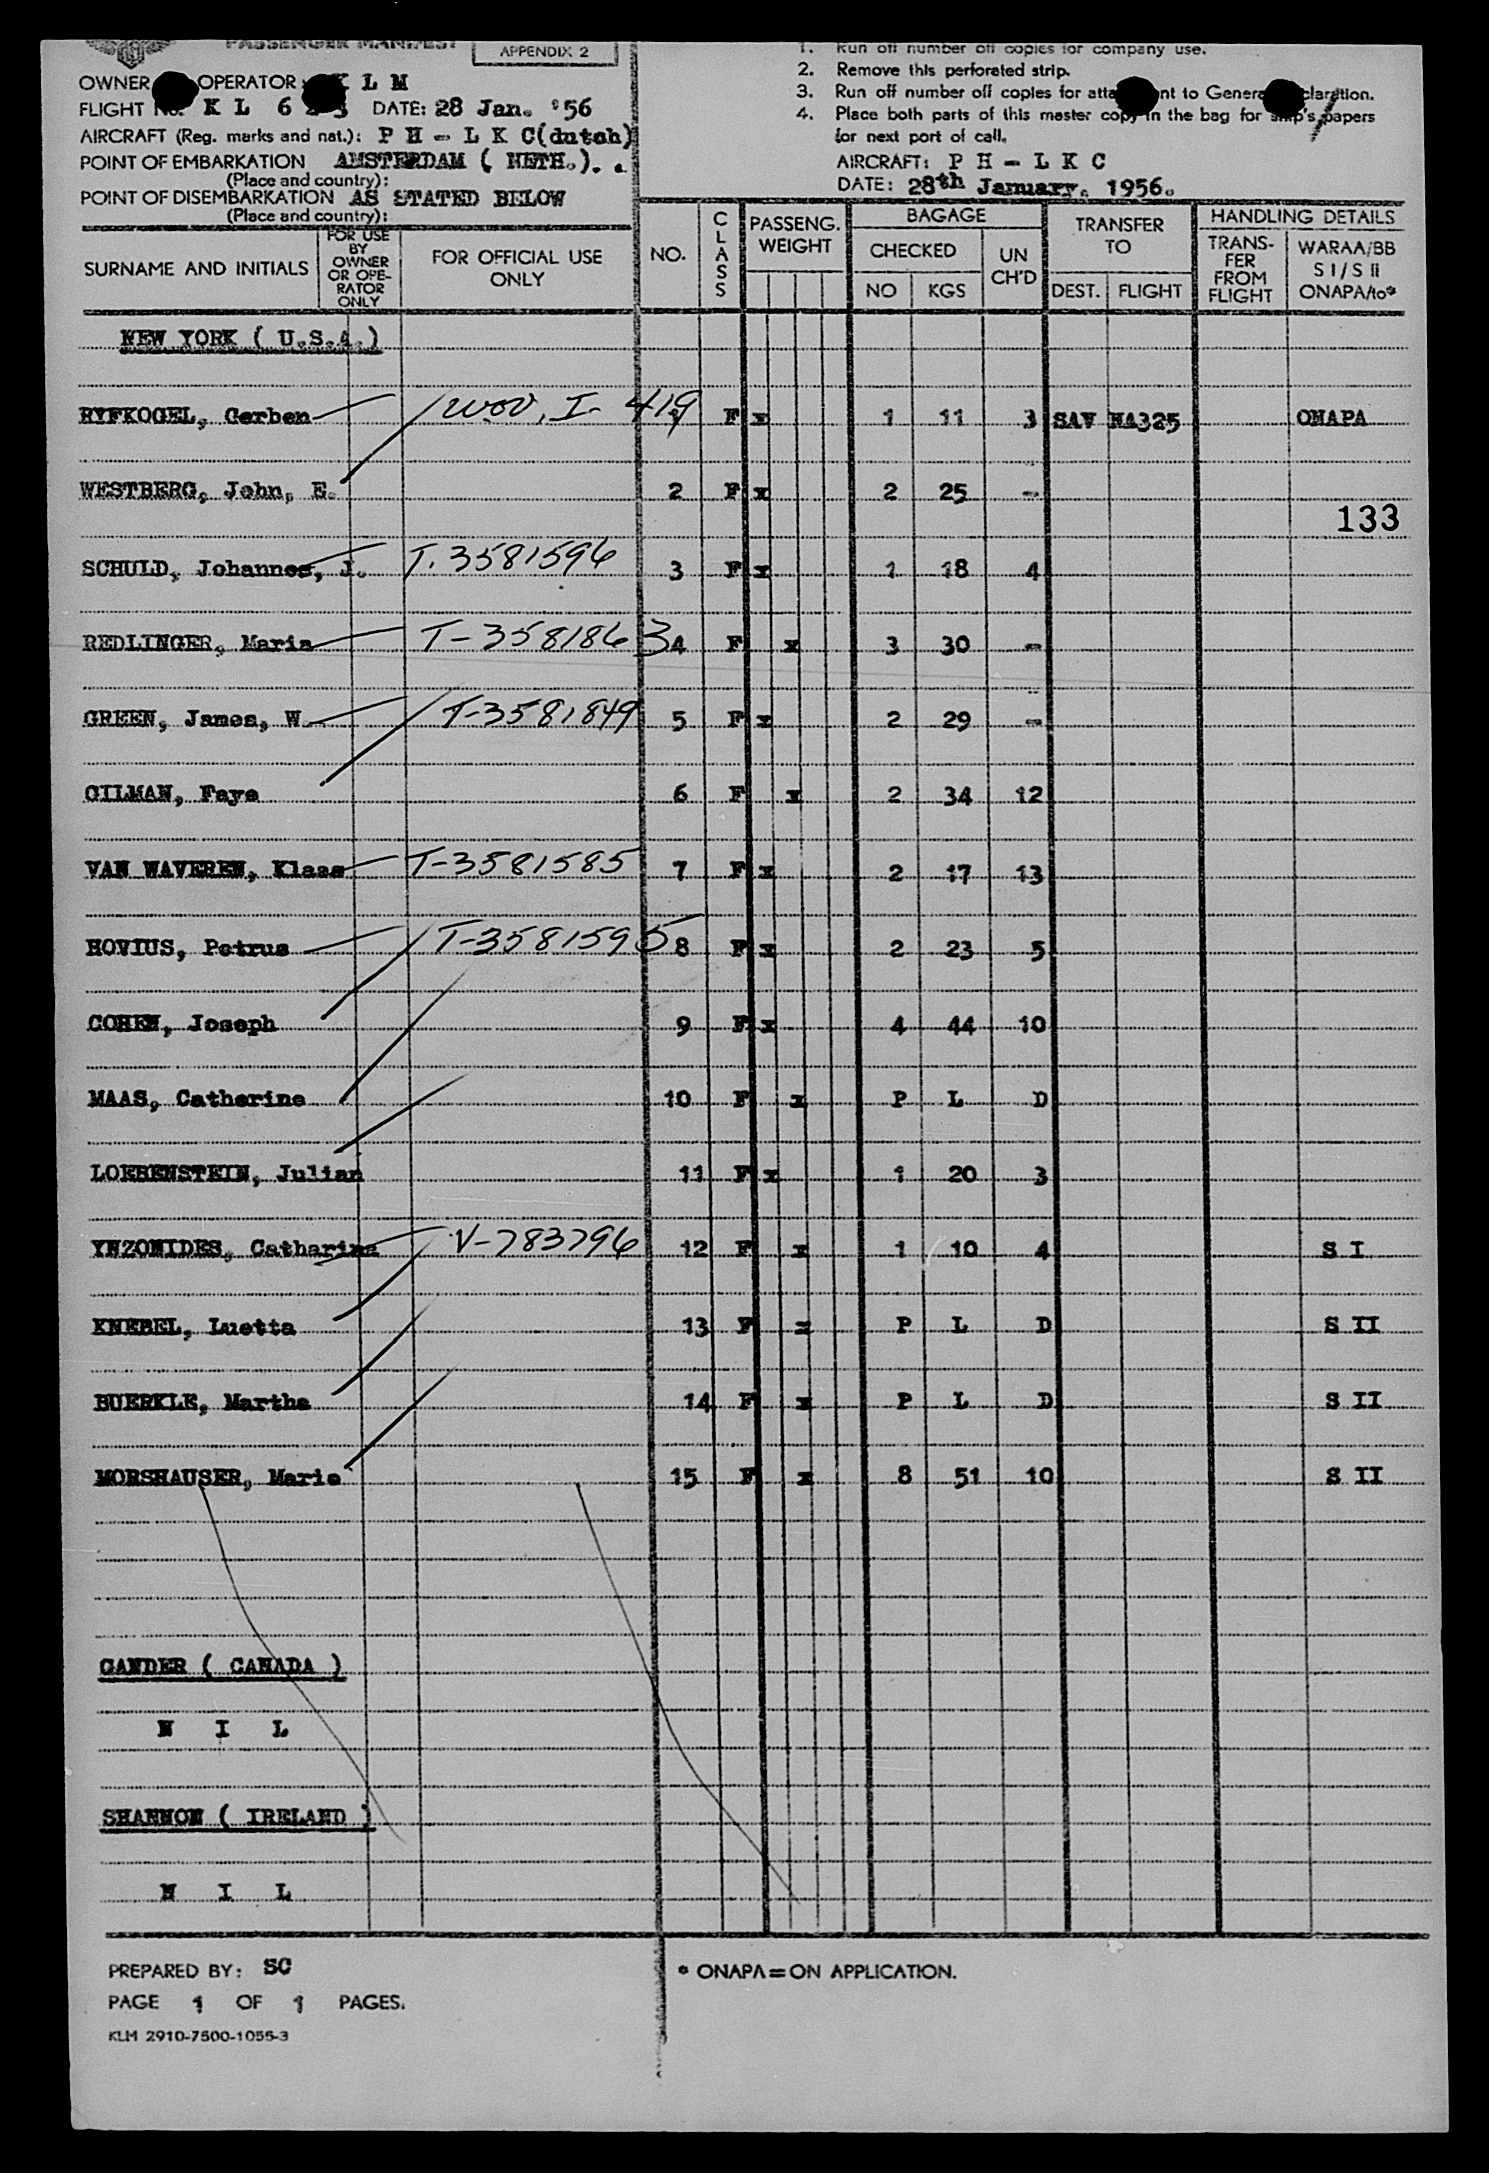 PASSENGER MANIFEST
APPENDIX 2
OWNER OPERATOR: K L M
FLIGHT No. K L 6 3 DATE: 28 Jan. '56
AIRCRAFT (Reg. marks and nat.): P H - L K C (dutch)
POINT OF EMBARKATION AMSTERDAM ( NETH.).
(Place and country):
POINT OF DISEMBARKATION AS STATED BELOW
(Place and country):
1. Run off number off copies for company use.
2. Remove this perforated strip.
3. Run off number off copies for to General
4. Place both parts of this master copy in the bag for ship's papers
for next port of call.
AIRCRAFT: P H - L K C
DATE: 28th January. 1956.
SURNAME AND INITIALS FOR USE BY OWNER OR OPE-RATOR ONLY FOR OFFICIAL USE ONLY NO. CLASS PASSENG. WEIGHT BAGAGE CHECKED NO KGS UN CH'D TRANSFER TO DEST. FLIGHT HANDLING DETAILS TRANS-FER FROM FLIGHT WARAA/BB S I / S II ONAPA/to*
NEW YORK ( U.S.A.)
RYFKOGEL, Gerben I- 419 F x 1 11 3 SAV NA325 ONAPA
WESTBERG, John, E. 2 F x 2 25 -
133
SCHULD, Johannes, J. T. 3581596 3 F x 1 18 4
REDLINGER, Maria T-3581863 4 F x 3 30 -
GREEN, James, W. T-3581849 5 F x 2 29 -
GILMAN, Faye 6 F x 2 34 12
VAN WAVEREN, Klaas T-3581585 7 F x 2 17 13
HOVIUS, Petrus T-3581595 8 F x 2 23 5
COHEN, Joseph 9 F x 4 44 10
MAAS, Catherine 10 F x P L D
LOEBENSTEIN, Julian 11 F x 1 20 3
YNZONIDES, Catharina V-783796 12 F x 1 10 4 S I
KNEBEL, Luetta 13 F x P L D S II
BUERKLE, Martha 14 F x P L D S II
MORSHAUSER, Marie 15 F x 8 51 10 S II
GANDER ( CANADA )
N I L
SHANNON ( IRELAND )
N I L
PREPARED BY: SC
* ONAPA = ON APPLICATION.
PAGE 1 OF 1 PAGES.
KLM 2910-7500-1055-3